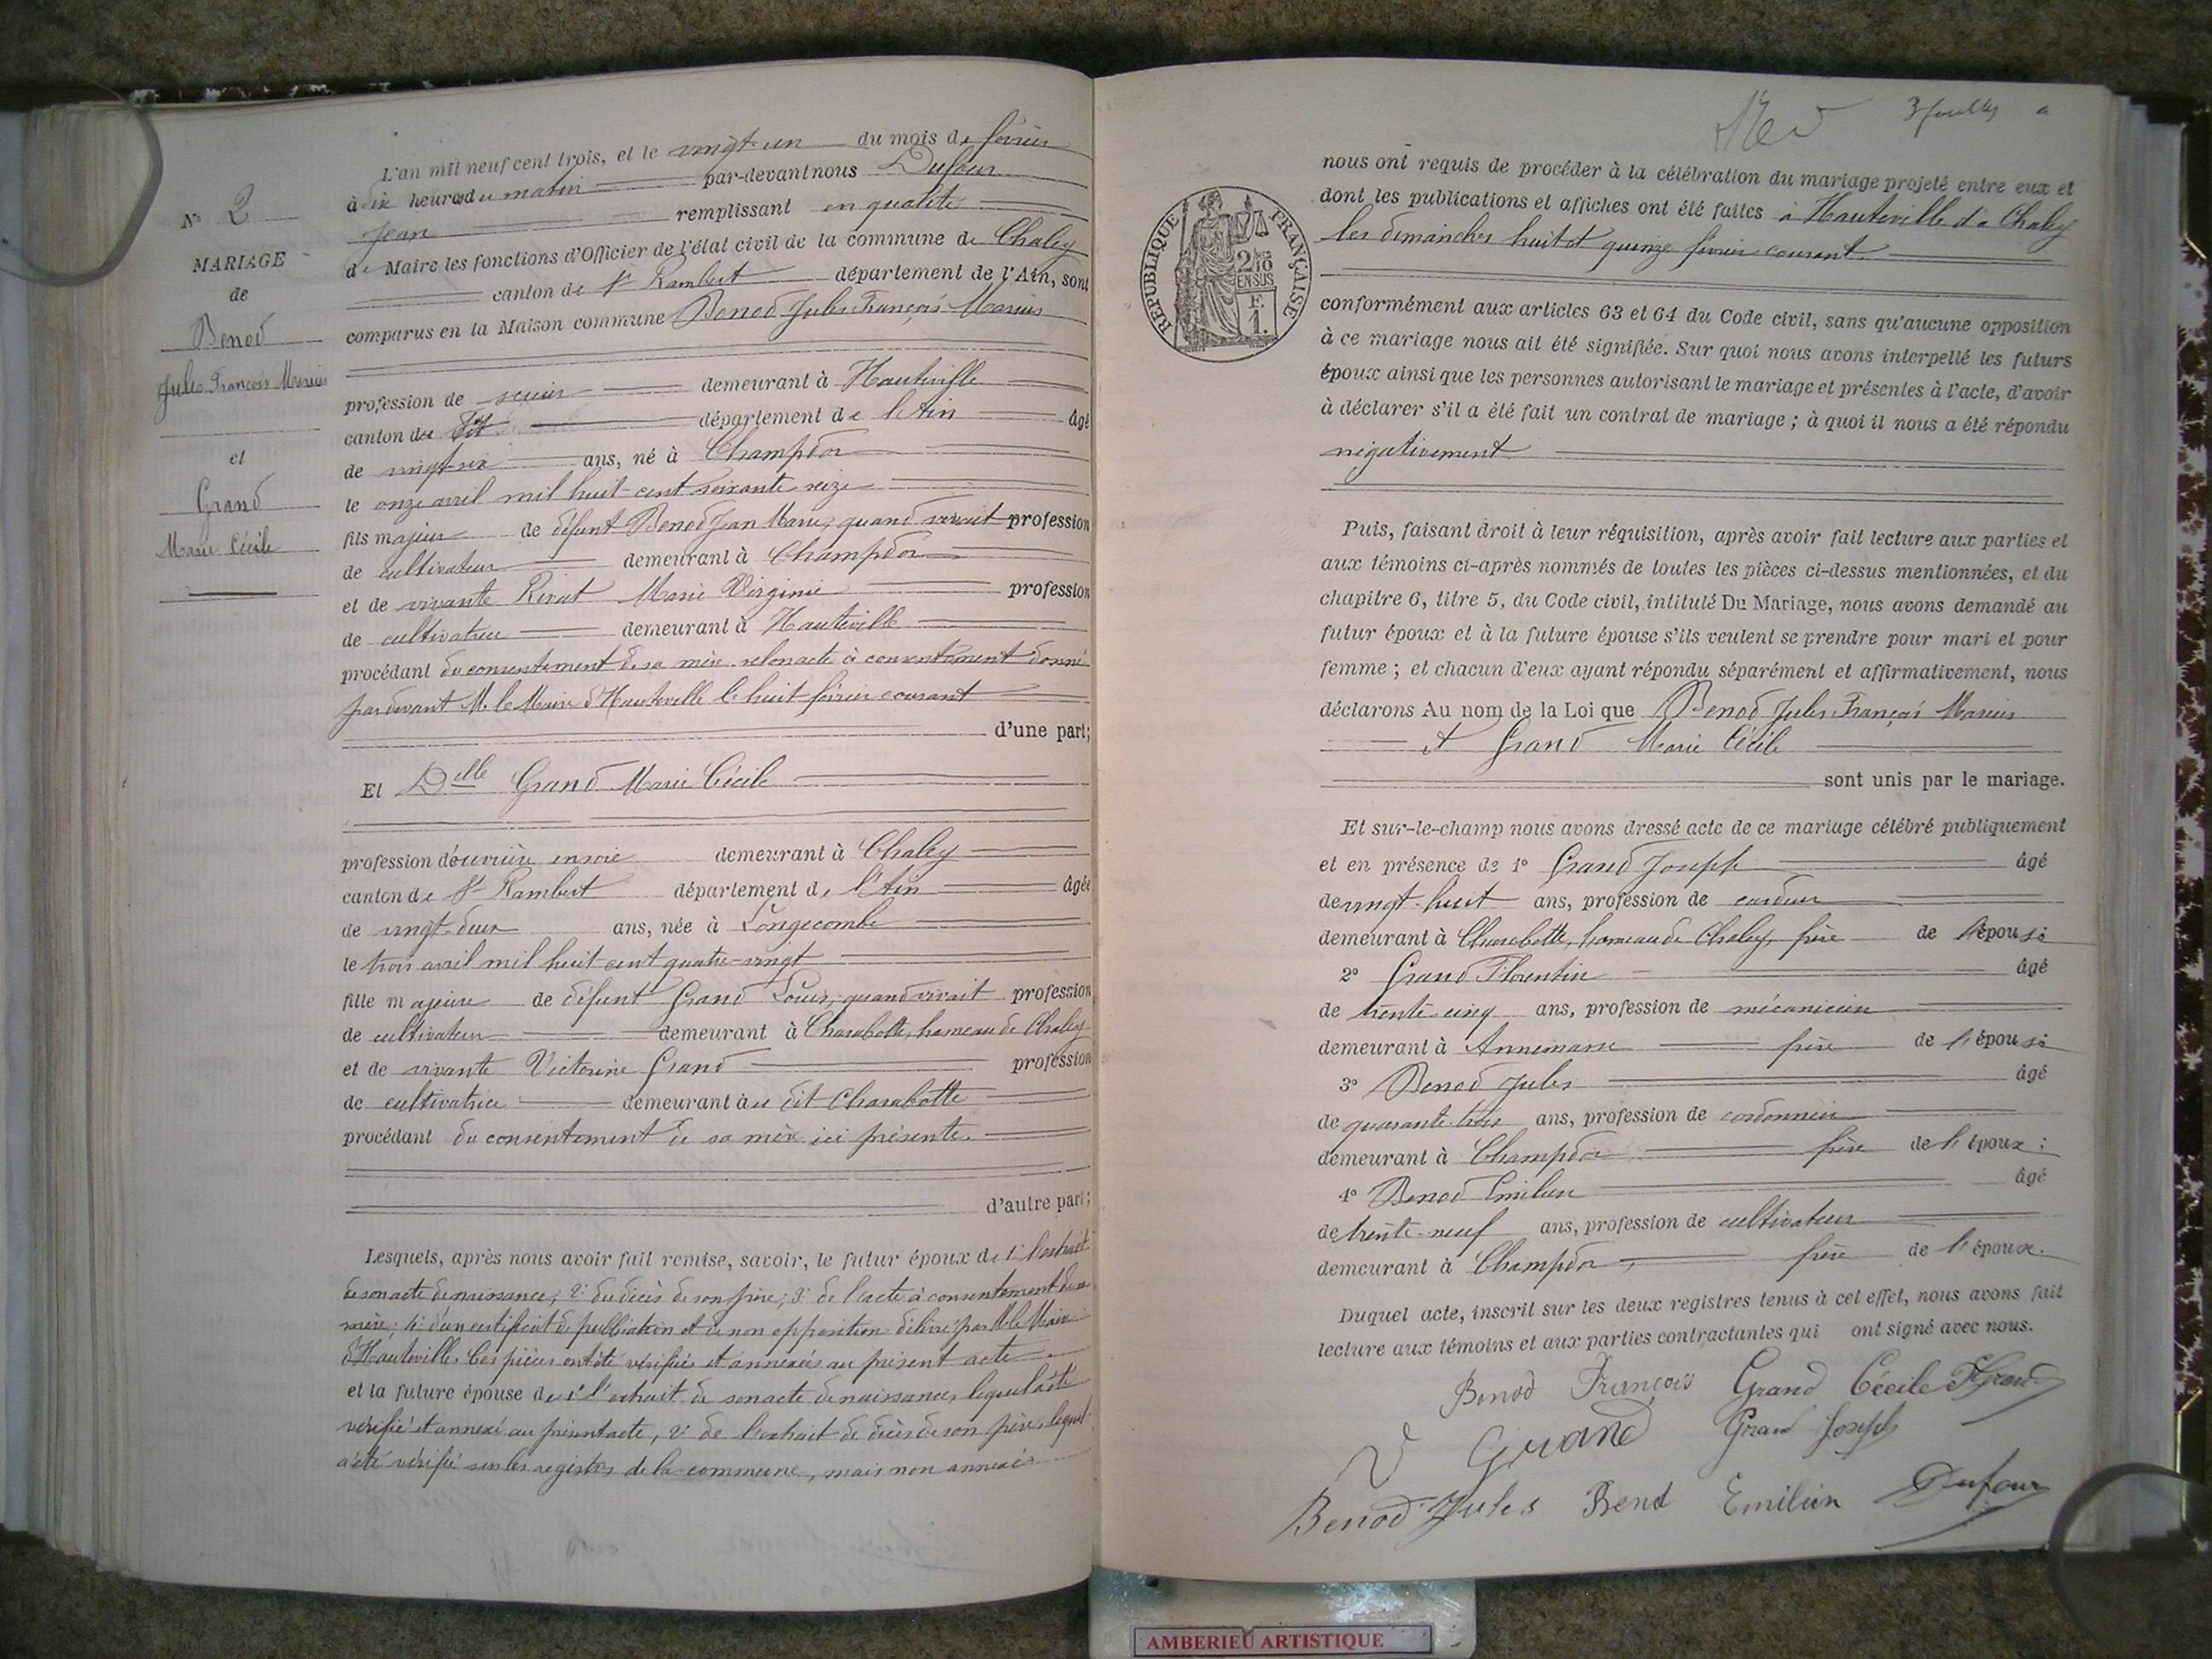 N° 2
MARIAGE
de
Benod
Jules François Marius
et
Grand
Marie Cécile
L'an mil neuf cent trois, et le vingt-un du mois de février
à dix heures du matin par-devant nous Dufour
Jean remplissant en qualité
de Maire les fonctions d'Officier de l'état civil de la commune de Chaley
canton de St Rambert département de l'Ain, sont
comparus en la Maison commune Benod Jules François Marius
profession de scieur demeurant à Hauteville
canton du dit département de l'Ain âgé
de vingt-six ans, né à Champdor
le onze avril mil huit cent soixante seize
fils majeur de défunt Benod Jean Marie, quand vivait profession
de cultivateur demeurant à Champdor
et de vivante Rivat Marie Virginie profession
de cultivatrice demeurant à Hauteville
procédant du consentement de sa mère selon acte à consentement donné
par devant M. le Maire d'Hauteville le huit février courant
d'une part;
Et Delle Grand Marie Cécile
profession d'ouvrière en soie demeurant à Chaley
canton de St Rambert département de l'Ain âgée
de vingt-deux ans, née à Longecombe
le trois avril mil huit cent quatre-vingt
fille majeure de défunt Grand Louis, quand vivait profession
de cultivateur demeurant à Charabotte, hameau de Chaley
et de vivante Victorine Grand profession
de cultivatrice demeurant au dit Charabotte
procédant du consentement de sa mère ici présente.
d'autre part;
Lesquels, après nous avoir fait remise, savoir, le futur époux de 1° l'extrait
de son acte de naissance; 2° du décès de son père; 3° de l'acte à consentement de sa
mère; 4° d'un certificat de publication et de non opposition délivré par M. le Maire
d'Hauteville. Ces pièces ont été vérifiées et annexées au présent acte.
et la future épouse de 1° l'extrait de son acte de naissance, lequel a été
vérifié et annexé au présent acte, 2° de l'extrait de décès de son père, lequel
a été vérifié sur les registres de la commune, mais non annexé
3 feuilles
RÉPUBLIQUE FRANÇAISE
2/10
EN SUS
F.
1.
nous ont requis de procéder à la célébration du mariage projeté entre eux et
dont les publications et affiches ont été faites à Hauteville et à Chaley
les dimanches huit et quinze février courant.
conformément aux articles 63 et 64 du Code civil, sans qu'aucune opposition
à ce mariage nous ait été signifiée. Sur quoi nous avons interpellé les futurs
époux ainsi que les personnes autorisant le mariage et présentes à l'acte, d'avoir
à déclarer s'il a été fait un contrat de mariage; à quoi il nous a été répondu
négativement
Puis, faisant droit à leur réquisition, après avoir fait lecture aux parties et
aux témoins ci-après nommés de toutes les pièces ci-dessus mentionnées, et du
chapitre 6, titre 5, du Code civil, intitulé Du Mariage, nous avons demandé au
futur époux et à la future épouse s'ils veulent se prendre pour mari et pour
femme; et chacun d'eux ayant répondu séparément et affirmativement, nous
déclarons Au nom de la Loi que Benod Jules François Marius
et Grand Marie Cécile
sont unis par le mariage.
Et sur-le-champ nous avons dressé acte de ce mariage célébré publiquement
et en présence de 1° Grand Joseph âgé
de vingt-huit ans, profession de cardeur
demeurant à Charabotte, hameau de Chaley, frère de l'épouse
2° Grand Florentin âgé
de trente-cinq ans, profession de mécanicien
demeurant à Annemasse frère de l'épouse
3° Benod Jules âgé
de quarante-trois ans, profession de cordonnier
demeurant à Champdor frère de l'époux;
4° Benod Emilien âgé
de trente-neuf ans, profession de cultivateur
demeurant à Champdor, frère de l'époux.
Duquel acte, inscrit sur les deux registres tenus à cet effet, nous avons fait
lecture aux témoins et aux parties contractantes qui ont signé avec nous.
Benod François Grand Cécile FGrand
V Grand Grand Joseph
Benod Jules Benod Emilien Dufour
AMBERIEU ARTISTIQUE